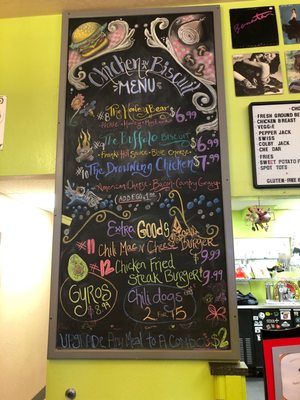 Chicken Biscuit
MENU
#8 The Honey Bear $6.99
Pickle · Honey · Mustard
#9 The Buffalo Biscuit $6.99
Frank's Hot Sauce · Blue Cheese
#10 The Drowning Chicken $7.99
American Cheese · Bacon · Country Gravy
ADD EGG
Extra Goods
#11 Chili Mac N Cheese Burger $9.99
#12 Chicken Fried
Steak Burger! $9.99
Gyros
$8.99
Chili dogs
2 For
UPGRADE Any Meal to A COMBO $2
FRESH GROUND BE
CHICKEN BREAST
VEGG-E
PEPPER JACK
SWISS
COLBY JACK
CHE DAR
FRIES
SWEET POTATO
PASTA SA
GLUTEN-FREE